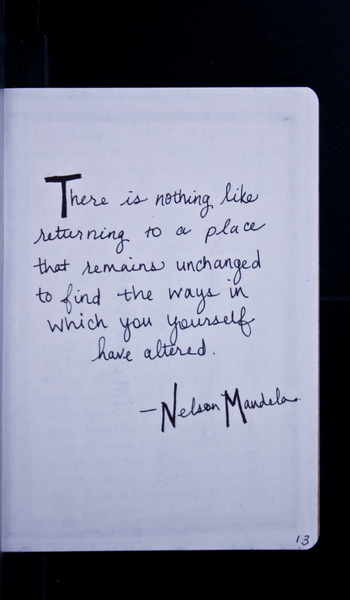 There is nothing like
returning to a place
that remains unchanged
to find the ways in
which you yourself
have altered.
—Nelson Mandela
13